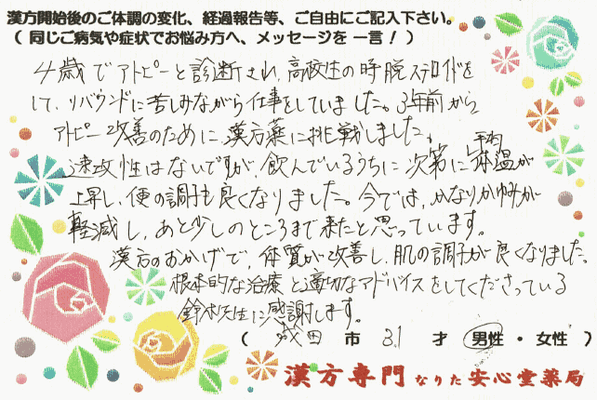 漢方開始後のご体調の変化、経過報告等、ご自由にご記入下さい。
（ 同じご病気や症状でお悩み方へ、メッセージを 一言！ ）
4歳でアトピーと診断され、高校生の時脱ステロイドを
して、リバウンドに苦しみながら仕事をしていました。3年前から
アトピー改善のために漢方薬に挑戦しました。
速攻性はないですが、飲んでいるうちに次第に平均体温が
上昇し、便の調子も良くなりました。今では、かなりかゆみが
軽減し、あと少しのところまで来たと思っています。
漢方のおかげで、体質が改善し、肌の調子が良くなりました。
根本的な治療と適切なアドバイスをしてくださっている
鈴木先生に感謝します。
（ 成田 市 31 才 男性 ・ 女性 ）
漢方専門 なりた 安心堂薬局